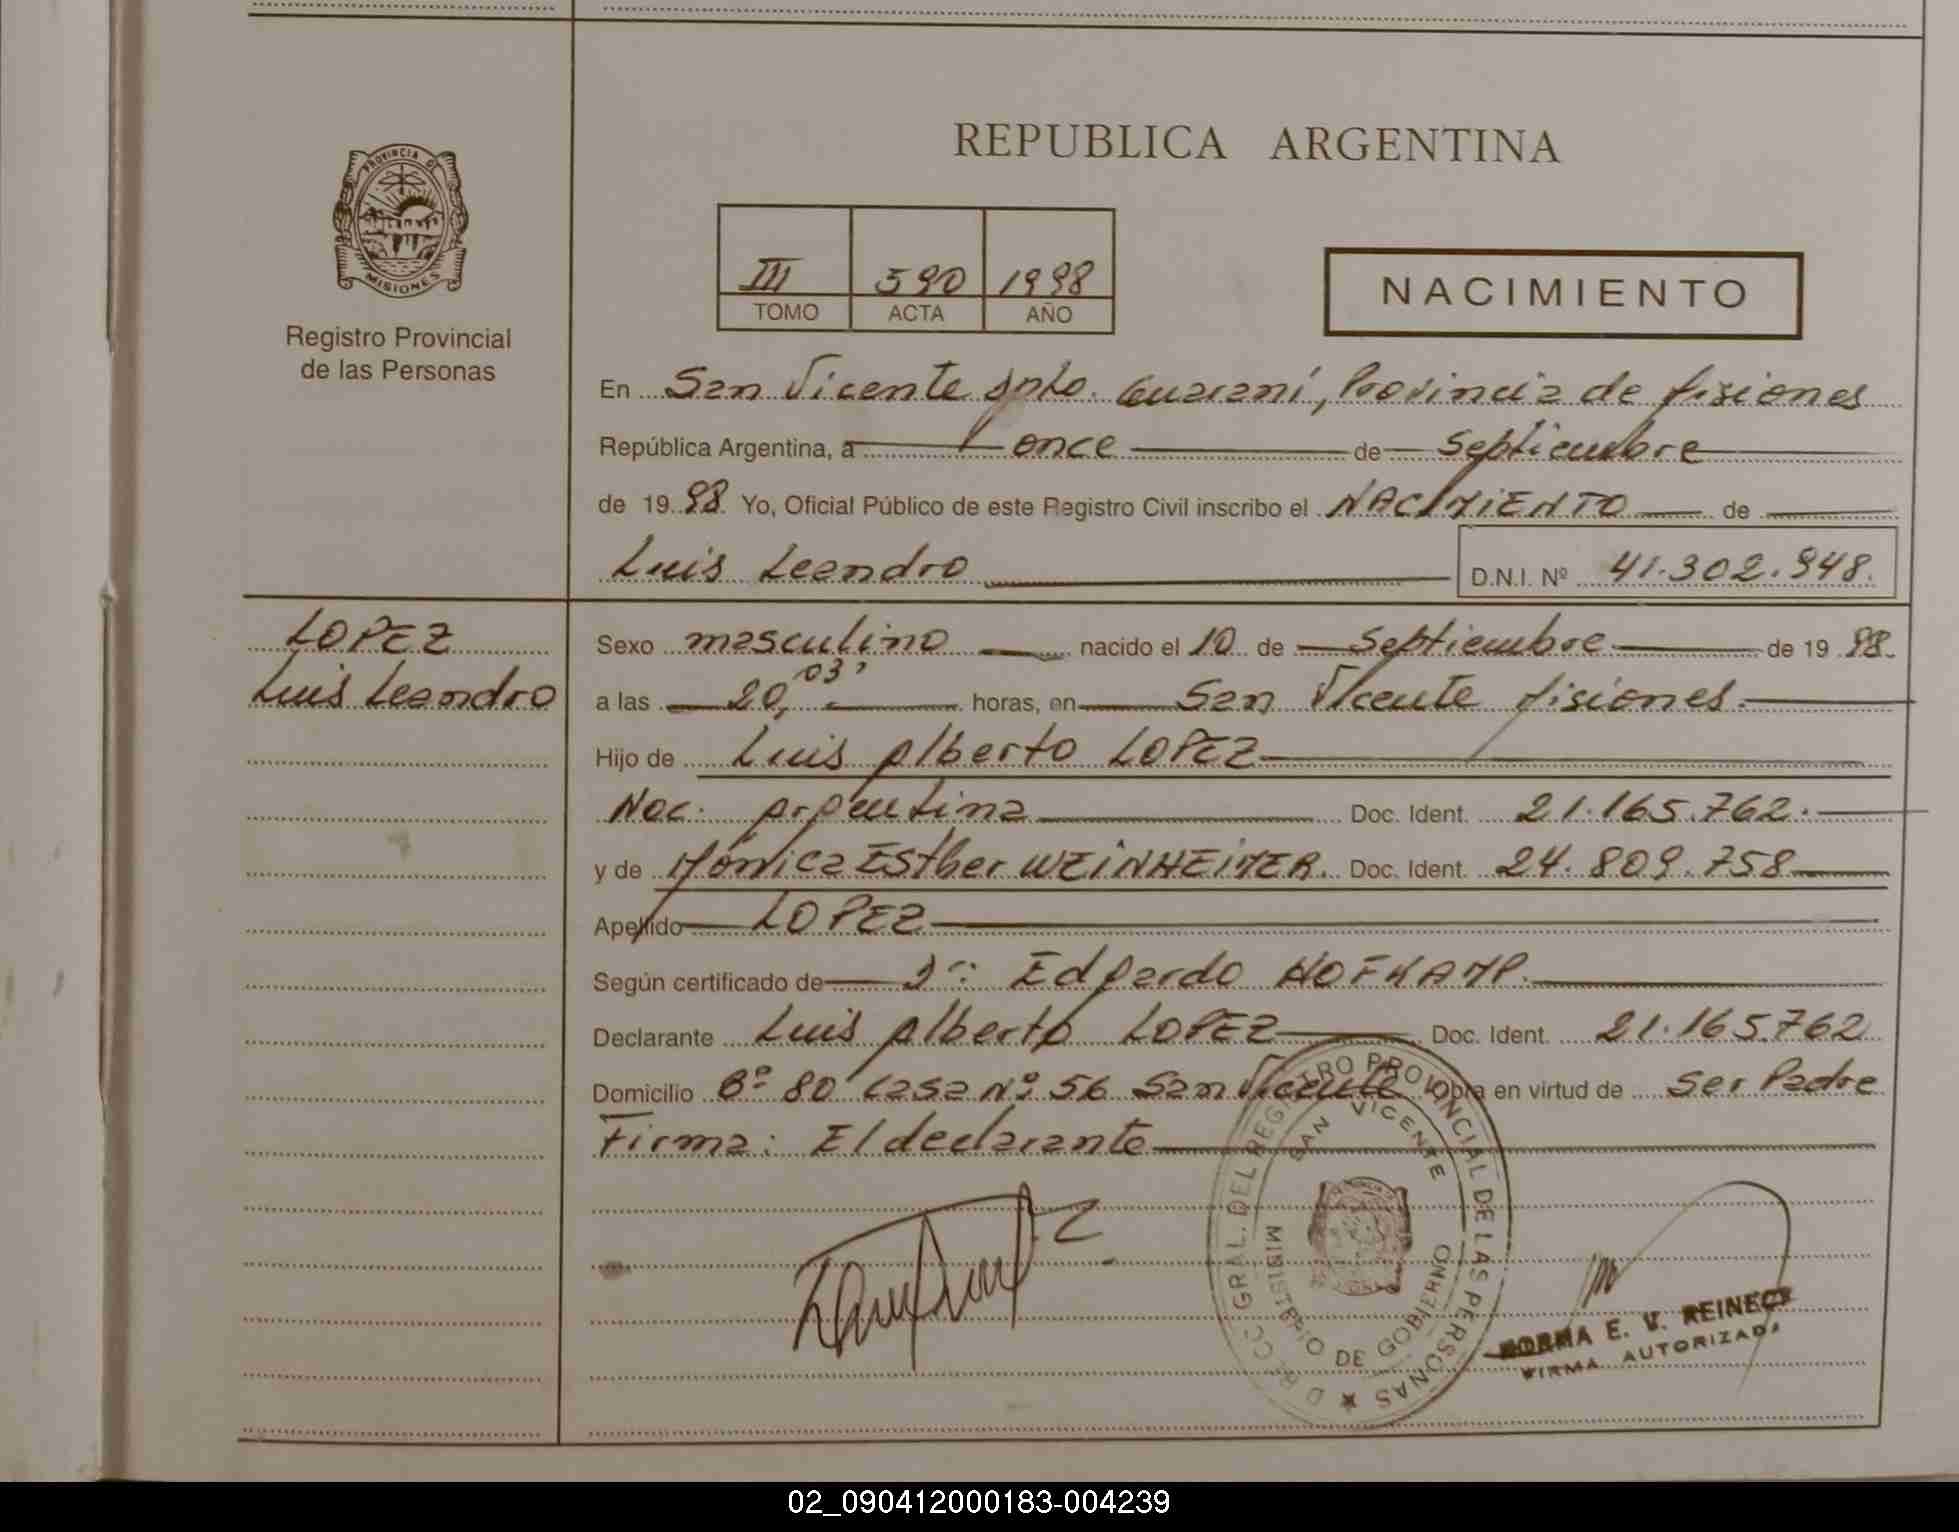 REPUBLICA ARGENTINA
PROVINCIA DE
MISIONES
Registro Provincial
de las Personas
III 590 1998
TOMO ACTA AÑO
NACIMIENTO
En San Vicente Dpto. Guaraní, Provincia de Misiones
República Argentina, a once de Septiembre
de 1998 Yo, Oficial Público de este Registro Civil inscribo el NACIMIENTO de
Luis Leandro D.N.I. Nº 41.302.948.
LOPEZ
Luis Leandro
Sexo masculino nacido el 10 de Septiembre de 1998.
a las 20, 03' horas, en San Vicente Misiones.
Hijo de Luis Alberto LOPEZ
Nac. Argentina Doc. Ident. 21.165.762.
y de Mónica Esther WEINHEIMER. Doc. Ident. 24.809.758
Apellido LOPEZ
Según certificado de Dr: Edgardo HOFKAMP.
Declarante Luis Alberto LOPEZ Doc. Ident. 21.165.762
Domicilio Bº 80 casa Nº 56 San Vicente Obra en virtud de Ser Padre
Firma: El declarante
D.R.CC. GRAL. DEL REGISTRO PROVINCIAL DE LAS PERSONAS
SAN VICENTE
MINISTERIO DE GOBIERNO
NORMA E. V. REINECK
FIRMA AUTORIZADA
02_090412000183-004239